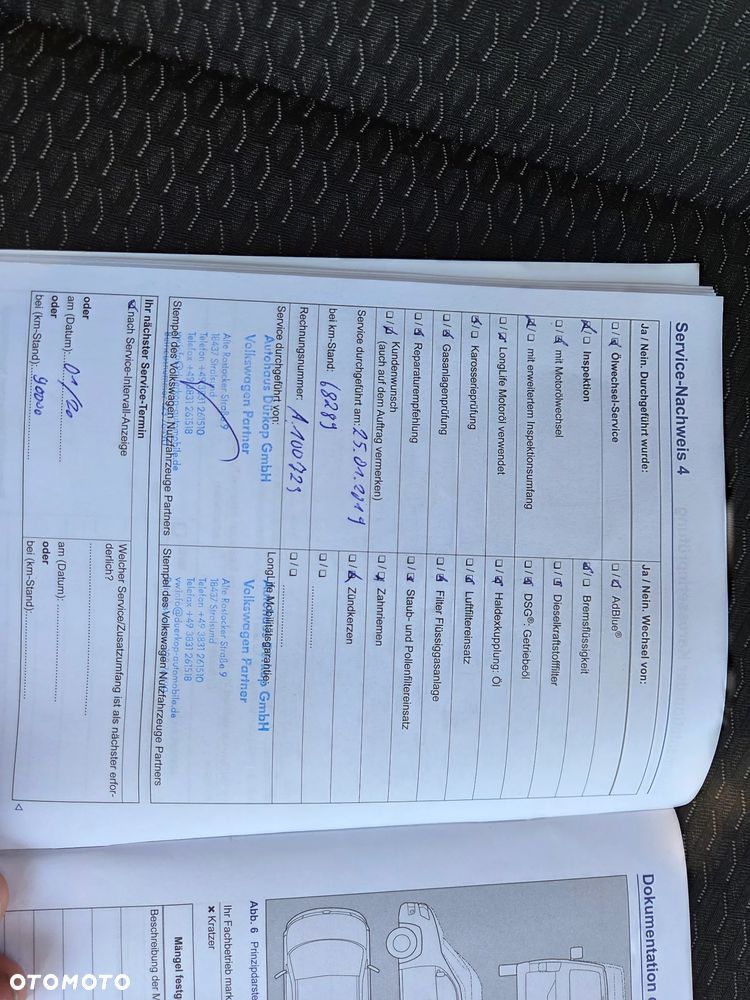 Service-Nachweis 4
Ja / Nein. Durchgeführt wurde:
☐ / ☒ Ölwechsel-Service
☒ / ☐ Inspektion
☐ / ☒ mit Motorölwechsel
☒ / ☐ mit erweitertem Inspektionsumfang
☐ / ☒ LongLife Motoröl verwendet
☒ / ☐ Karosserieprüfung
☐ / ☒ Gasanlagenprüfung
☐ / ☒ Reparaturempfehlung
☐ / ☒ Kundenwunsch
(auch auf dem Auftrag vermerken)
Service durchgeführt am: 25.01.2019
bei km-Stand: 68289
Rechnungsnummer: A.100723
Service durchgeführt von:
Autohaus Dürkop GmbH
Volkswagen Partner
Alte Rostocker Straße 9
18437 Stralsund
Telefon +49 3831 261510
Telefax +49 3831 261518
Stempel des Volkswagen Nutzfahrzeuge Partners
Ja / Nein. Wechsel von:
☐ / ☒ AdBlue®
☒ / ☐ Bremsflüssigkeit
☐ / ☒ Dieselkraftstofffilter
☐ / ☒ DSG®- Getriebeöl
☐ / ☒ Haldexkupplung: Öl
☐ / ☒ Luftfiltereinsatz
☐ / ☒ Filter Flüssiggasanlage
☐ / ☒ Staub- und Pollenfiltereinsatz
☐ / ☒ Zahnriemen
☐ / ☒ Zündkerzen
☐ / ☐
☐ / ☐
LongLife Mobilitätsgarantie
Volkswagen Partner
Alte Rostocker Straße 9
18437 Stralsund
Telefon +49 3831 261510
Telefax +49 3831 261518
vw.info@duerkop-automobile.de
Stempel des Volkswagen Nutzfahrzeuge Partners
Ihr nächster Service-Termin
☒ nach Service-Intervall-Anzeige
oder
am (Datum): 01/20
oder
bei (km-Stand): 90000
Welcher Service/Zusatzumfang ist als nächster erfor-
derlich?
am (Datum):
oder
bei (km-Stand):
Dokumentation
Abb. 6 Prinzipdarste
Ihr Fachbetrieb mark
× Kratzer
Mängel festg
Beschreibung der M
OTOMOTO